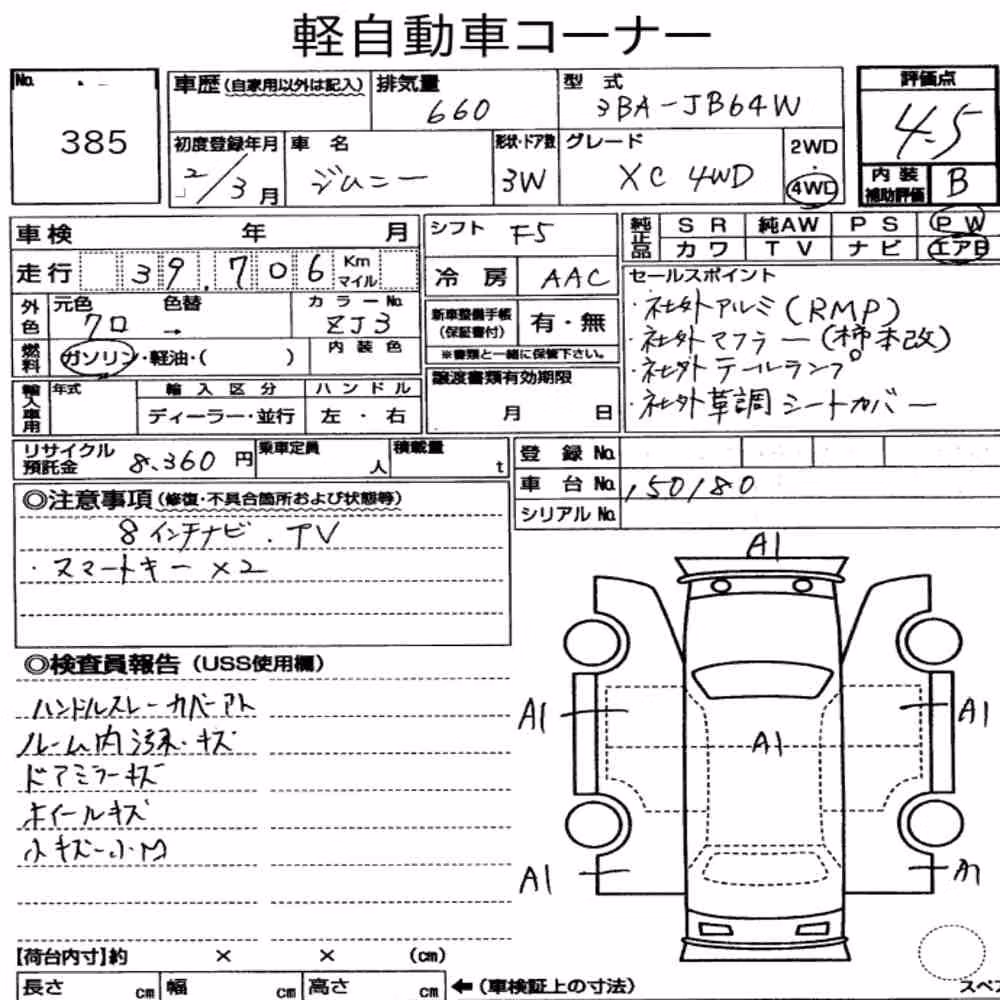 軽自動車コーナー
No.
385
車歴(自家用以外は記入)
排気量
660
型式
3BA-JB64W
評価点
4.5
初度登録年月
2/3月
車名
ジムニー
形状・ドア数
3W
グレード
XC 4WD
2WD
・
4WD
内装
補助評価
B
車検 年 月
走行 39,706 Km
マイル
シフト F5
冷房 AAC
純正品
SR 純AW PS PW
カワ TV ナビ エアB
外色
元色 色替
クロ →
カラーNo.
ZJ3
燃料
ガソリン・軽油・( )
内装色
新車整備手帳
(保証書付)
有・無
※書類と一緒に保管下さい。
セールスポイント
・社外アルミ(RMP)
・社外マフラー(柿本改)
・社外テールランプ
・社外革調シートカバー
輸入車用
年式
輸入区分
ディーラー・並行
ハンドル
左・右
譲渡書類有効期限
月 日
リサイクル
預託金
8,360円
乗車定員
人
積載量
t
登録No.
車台No. 150180
シリアルNo.
◎注意事項(修復・不具合箇所および状態等)
8インチナビ.TV
・スマートキー×2
◎検査員報告(USS使用欄)
ハンドルスレーカバーアト
ルーム内汚れ・キズ
ドアミラーキズ
ホイールキズ
小キズ-小凹
A1
A1
A1
A1
A1
A1
【荷台内寸】約 × × (cm)
長さ cm 幅 cm 高さ cm
←(車検証上の寸法)
スペ